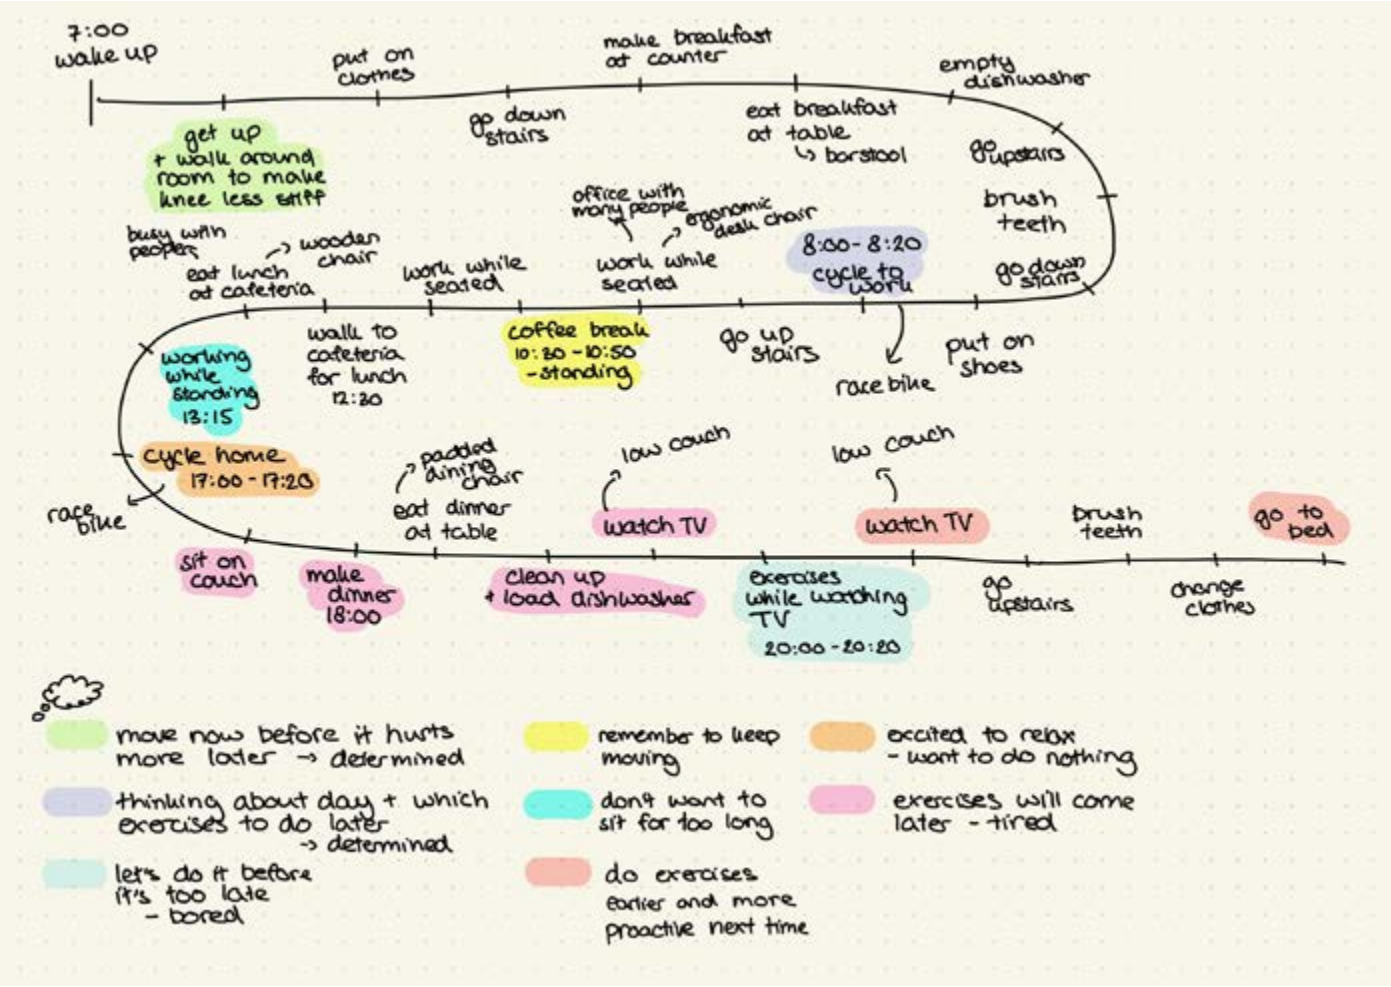 7:00
wake up
get up
+ walk around
room to make
knee less stiff
put on
clothes
go down
stairs
make breakfast
at counter
eat breakfast
at table
↳ barstool
empty
dishwasher
go
upstairs
brush
teeth
go down
stairs
put on
shoes
8:00 - 8:20
cycle to
work
race bike
go up
stairs
work while
seated
office with
many people
ergonomic
desk chair
coffee break
10:30 - 10:50
- standing
work while
seated
walk to
cafeteria
for lunch
12:30
eat lunch
at cafeteria
busy with
people
wooden
chair
working
while
standing
13:15
cycle home
17:00 - 17:20
race
bike
sit on
couch
make
dinner
18:00
eat dinner
at table
padded
dining
chair
clean up
+ load dishwasher
watch TV
low couch
exercises
while watching
TV
20:00 - 20:20
watch TV
low couch
go
upstairs
brush
teeth
change
clothes
go to
bed
move now before it hurts
more later → determined
thinking about day + which
exercises to do later
→ determined
let's do it before
it's too late
- bored
remember to keep
moving
don't want to
sit for too long
do exercises
earlier and more
proactive next time
excited to relax
- want to do nothing
exercises will come
later - tired